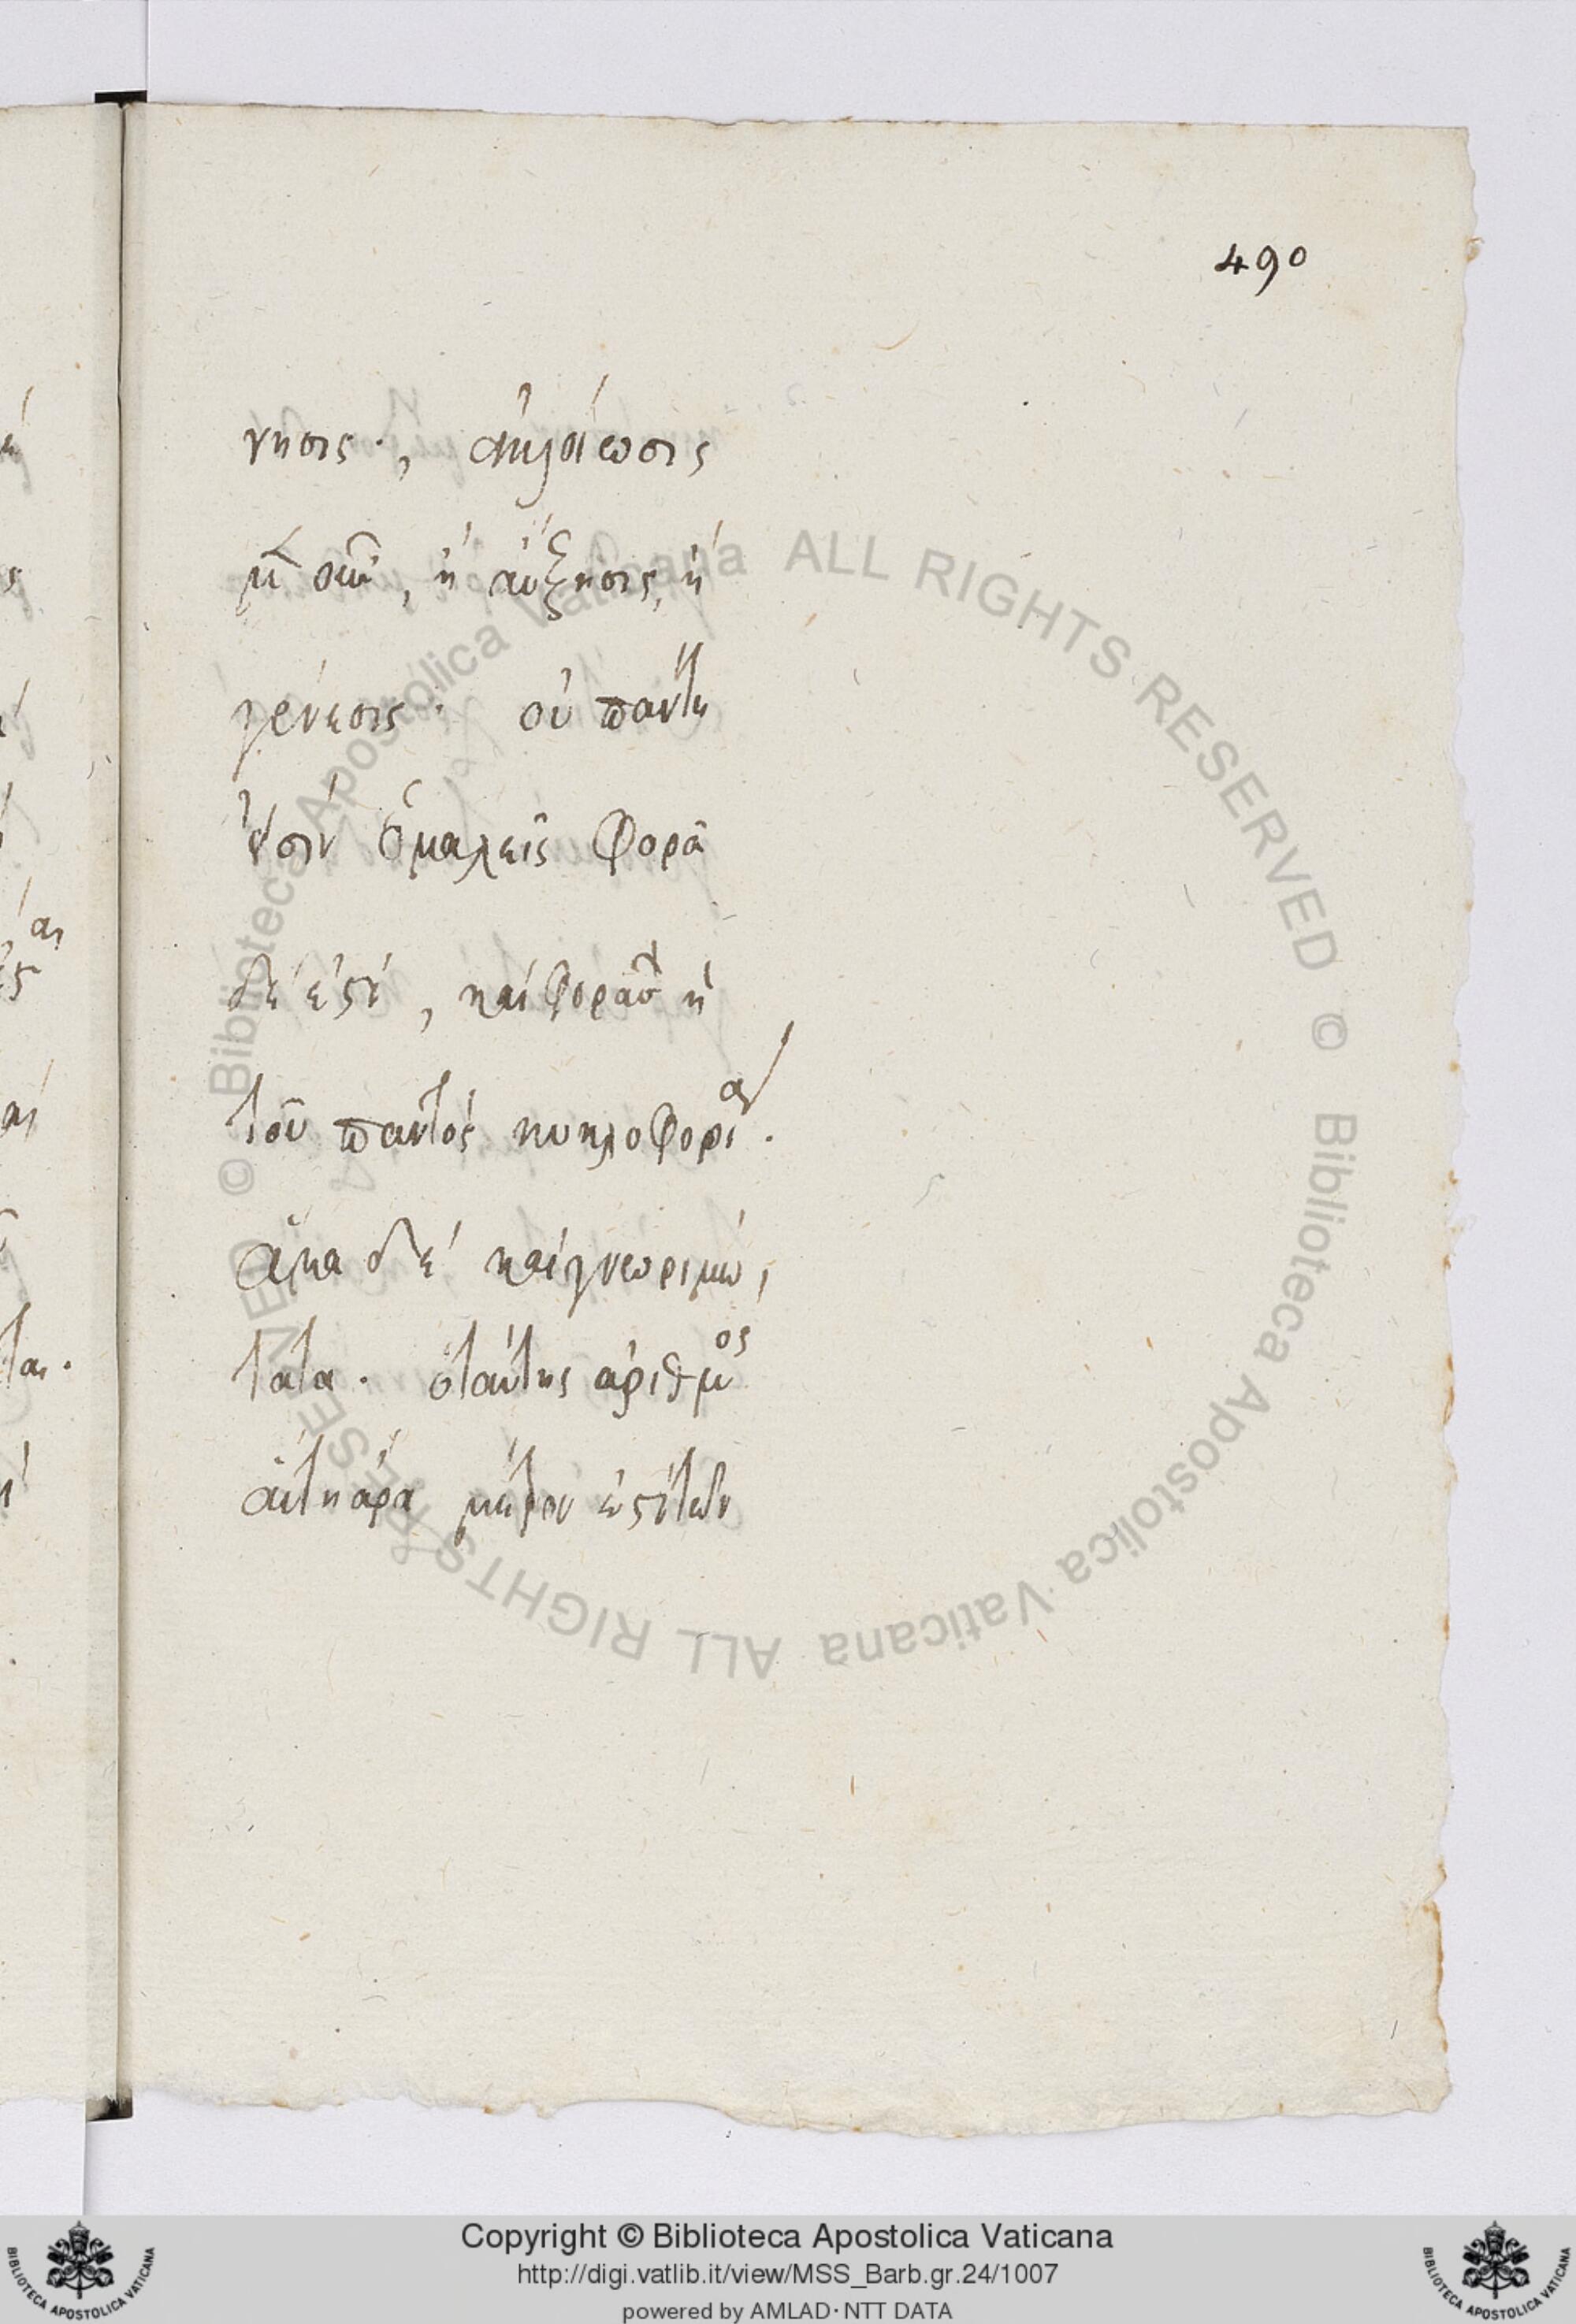 490
νησις., ἀλλοίωσις
μὲν οὖν, ἡ αὔξησις, ἡ
γένεσις. οὐ πάντη
εἰσὶν ὁμαλεῖς φορὰ
δέ ἐστι, καὶ φορᾶς ἡ
τοῦ παντὸς κυκλοφορία.
ἅμα δὲ καὶ γνωριμω,
τάτα. ὁ ταύτης ἀριθμὸς
ἄρα μέτρον ἐστὶ τῶν
© Biblioteca Apostolica Vaticana ALL RIGHTS RESERVED © Biblioteca Apostolica Vaticana ALL RIGHTS RESERVED
Copyright © Biblioteca Apostolica Vaticana
http://digi.vatlib.it/view/MSS_Barb.gr.24/1007
powered by AMLAD·NTT DATA
BIBLIOTECA APOSTOLICA VATICANA
BIBLIOTECA APOSTOLICA VATICANA